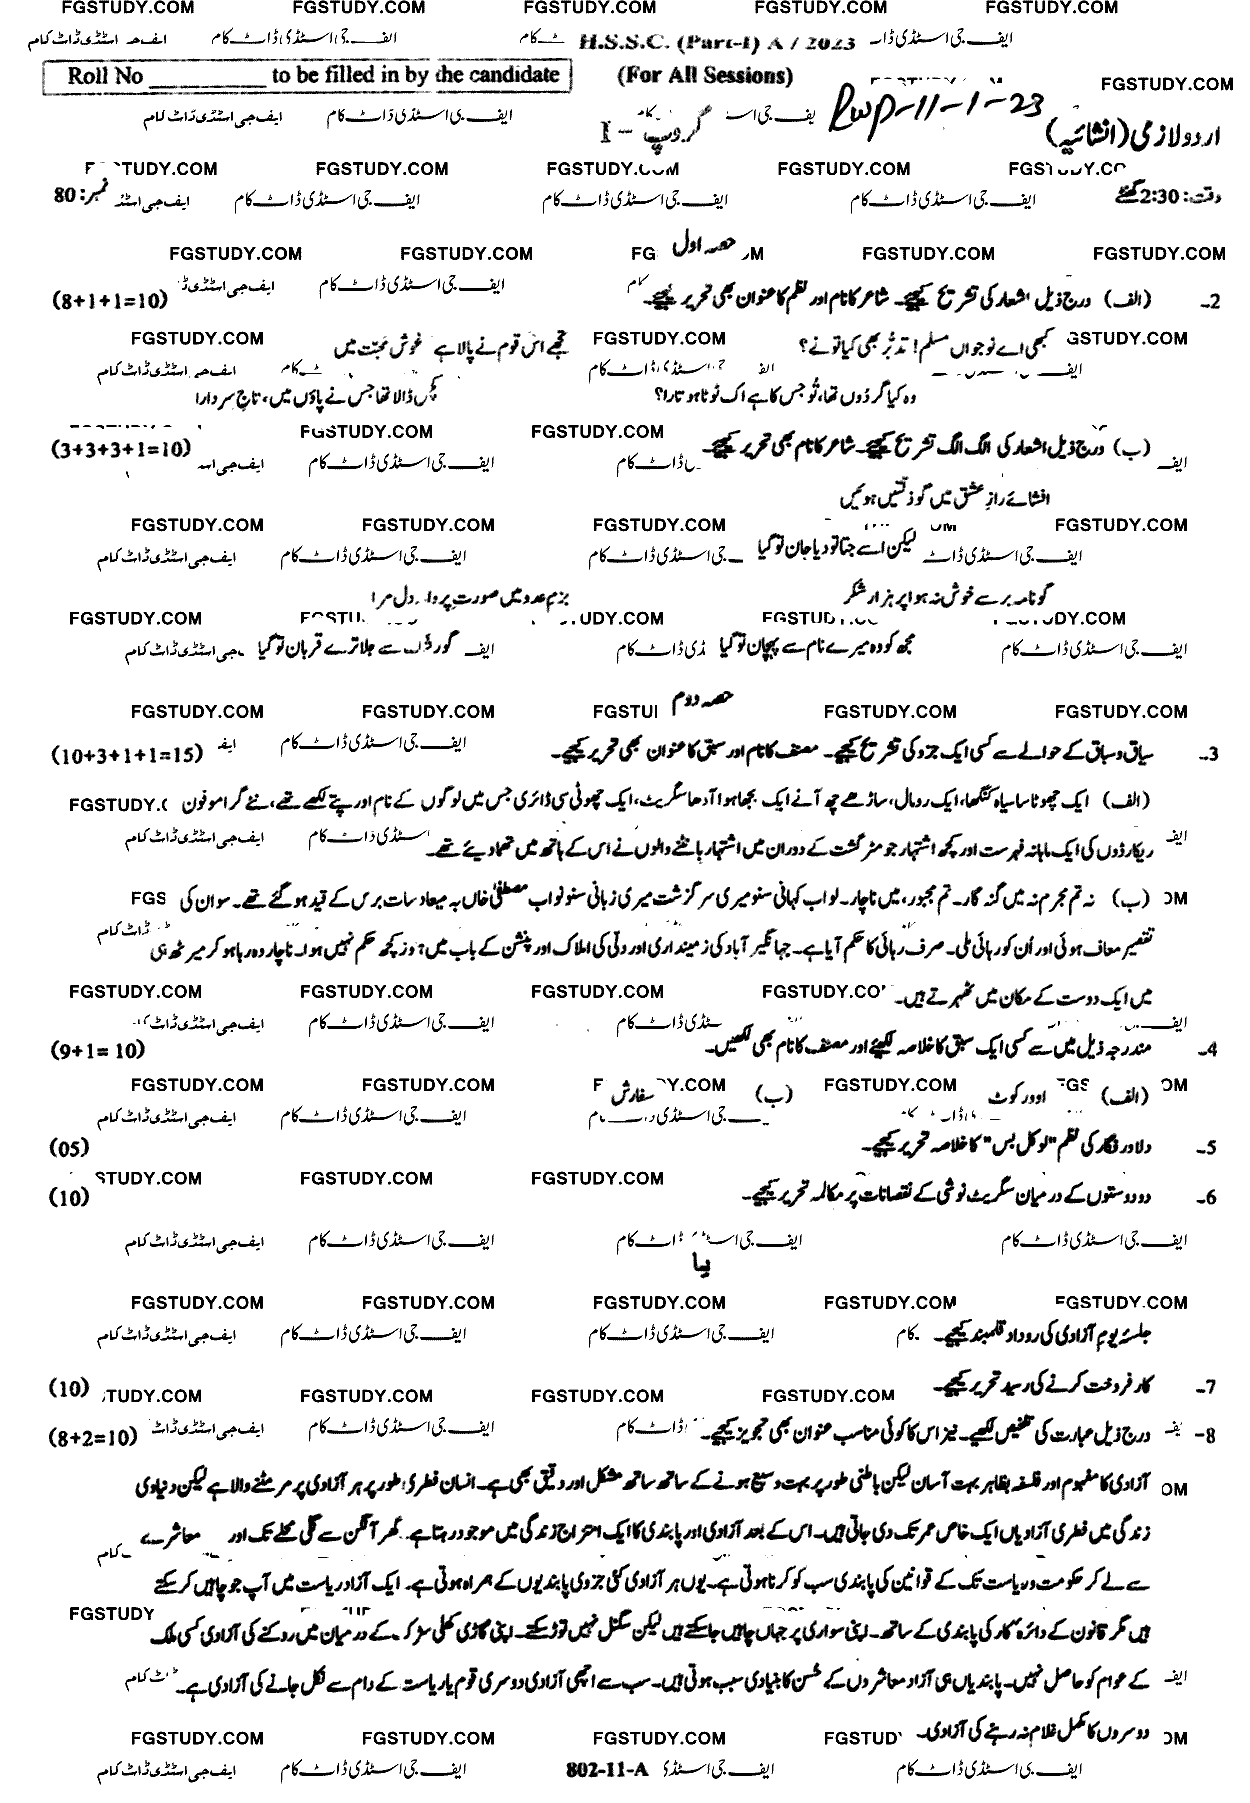 H.S.S.C. (Part-I) A / 2023
Roll No ________ to be filled in by the candidate (For All Sessions)
Rwp-11-1-23
اردو لازمی (انشائیہ) گروپ - I
وقت: 2:30 گھنٹے نمبر: 80
حصہ اول
2- (الف) درج ذیل اشعار کی تشریح کیجیے۔ شاعر کا نام اور نظم کا عنوان بھی تحریر کیجیے۔ (8+1+1=10)
کبھی اے نوجواں مسلم! تدبّر بھی کیا تو نے؟ تجھے اس قوم نے پالا ہے آغوشِ محبّت میں
وہ کیا گردُوں تھا، تُو جس کا ہے اک ٹوٹا ہوا تارا؟ کچل ڈالا تھا جس نے پاؤں میں، تاجِ سرِ دارا
(ب) درج ذیل اشعار کی الگ الگ تشریح کیجیے۔ شاعر کا نام بھی تحریر کیجیے۔ (3+3+3+1=10)
افشائے رازِ عشق میں گو ذلتیں ہوئیں
لیکن اسے جتا تو دیا جان تو گیا
گو نامہ بر سے خوش نہ ہوا پر ہزار شکر بزمِ عدو میں صورتِ پروانہ دل مرا
مجھ کو وہ میرے نام سے پہچان تو گیا گو رشک سے جلا ترے قربان تو گیا
حصہ دوم
3- سیاق و سباق کے حوالے سے کسی ایک جزو کی تشریح کیجیے۔ مصنف کا نام اور سبق کا عنوان بھی تحریر کیجیے۔ (10+3+1+1=15)
(الف) ایک چھوٹا سا سیاہ کنگھا، ایک رومال، ساڑھے چھ آنے ایک بجھا ہوا آدھا سگریٹ، ایک چھوٹی سی ڈائری جس میں لوگوں کے نام اور پتے لکھے تھے، نئے گراموفون
ریکارڈوں کی ایک ماہانہ فہرست اور کچھ اشتہار جو مٹر گشت کے دوران میں اشتہار بانٹنے والوں نے اس کے ہاتھ میں تھما دیئے تھے۔
(ب) نہ تم مجرم نہ میں گنہ گار۔ تم مجبور، میں ناچار۔ لو اب کہانی سنو میری سرگزشت میری زبانی سنو نواب مصطفیٰ خاں بہ میعاد سات برس کے قید ہو گئے تھے۔ سو ان کی
تقصیر معاف ہوئی اور اُن کو رہائی ملی۔ صرف رہائی کا حکم آیا ہے۔ جہانگیر آباد کی زمینداری اور دلّی کی املاک اور پنشن کے باب میں ہنوز کچھ حکم نہیں ہوا۔ ناچار وہ رہا ہو کر میرٹھ ہی
میں ایک دوست کے مکان میں ٹھہرے ہیں۔
4- مندرجہ ذیل میں سے کسی ایک سبق کا خلاصہ لکھیے اور مصنف کا نام بھی لکھیں۔ (9+1= 10)
(الف) اوور کوٹ (ب) سفارش
5- دلاور فگار کی نظم "لوکل بس" کا خلاصہ تحریر کیجیے۔ (05)
6- دو دوستوں کے درمیان سگریٹ نوشی کے نقصانات پر مکالمہ تحریر کیجیے۔ (10)
یا
جلسۂ یومِ آزادی کی روداد قلمبند کیجیے۔
7- کار فروخت کرنے کی رسید تحریر کیجیے۔ (10)
8- درج ذیل عبارت کی تلخیص کیجیے۔ نیز اس کا کوئی مناسب عنوان بھی تجویز کیجیے۔ (8+2=10)
آزادی کا مفہوم اور فلسفہ بظاہر بہت آسان لیکن باطنی طور پر بہت وسیع ہونے کے ساتھ ساتھ مشکل اور دقیق بھی ہے۔ انسان فطری طور پر ہر آزادی پر مر مٹنے والا ہے لیکن دنیاوی
زندگی میں فطری آزادیاں ایک خاص عمر تک دی جاتی ہیں۔ اس کے بعد آزادی اور پابندی کا ایک امتزاج زندگی میں موجود رہتا ہے۔ گھر آنگن سے گلی محلے تک اور معاشرے
سے لے کر حکومت و ریاست تک کے قوانین کی پابندی سب کو کرنا ہوتی ہے۔ یوں ہر آزادی کئی جزوی پابندیوں کے ہمراہ ہوتی ہے۔ ایک آزاد ریاست میں آپ جو چاہیں کر سکتے
ہیں مگر قانون کے دائرہ کار کی پابندی کے ساتھ۔ اپنی سواری پر جہاں چاہیں جا سکتے ہیں لیکن سگنل نہیں توڑ سکتے۔ اپنی گاڑی کھلی سڑک کے درمیان میں روکنے کی آزادی کسی ملک
کے عوام کو حاصل نہیں۔ پابندیاں ہی آزاد معاشروں کے حُسن کا بنیادی سبب ہوتی ہیں۔ سب سے اچھی آزادی دوسری قوم یا ریاست کے دام سے نکل جانے کی آزادی ہے۔
دوسروں کا مکمل غلام نہ رہنے کی آزادی۔
802-11-A
FGSTUDY.COM
ایف جی اسٹڈی ڈاٹ کام